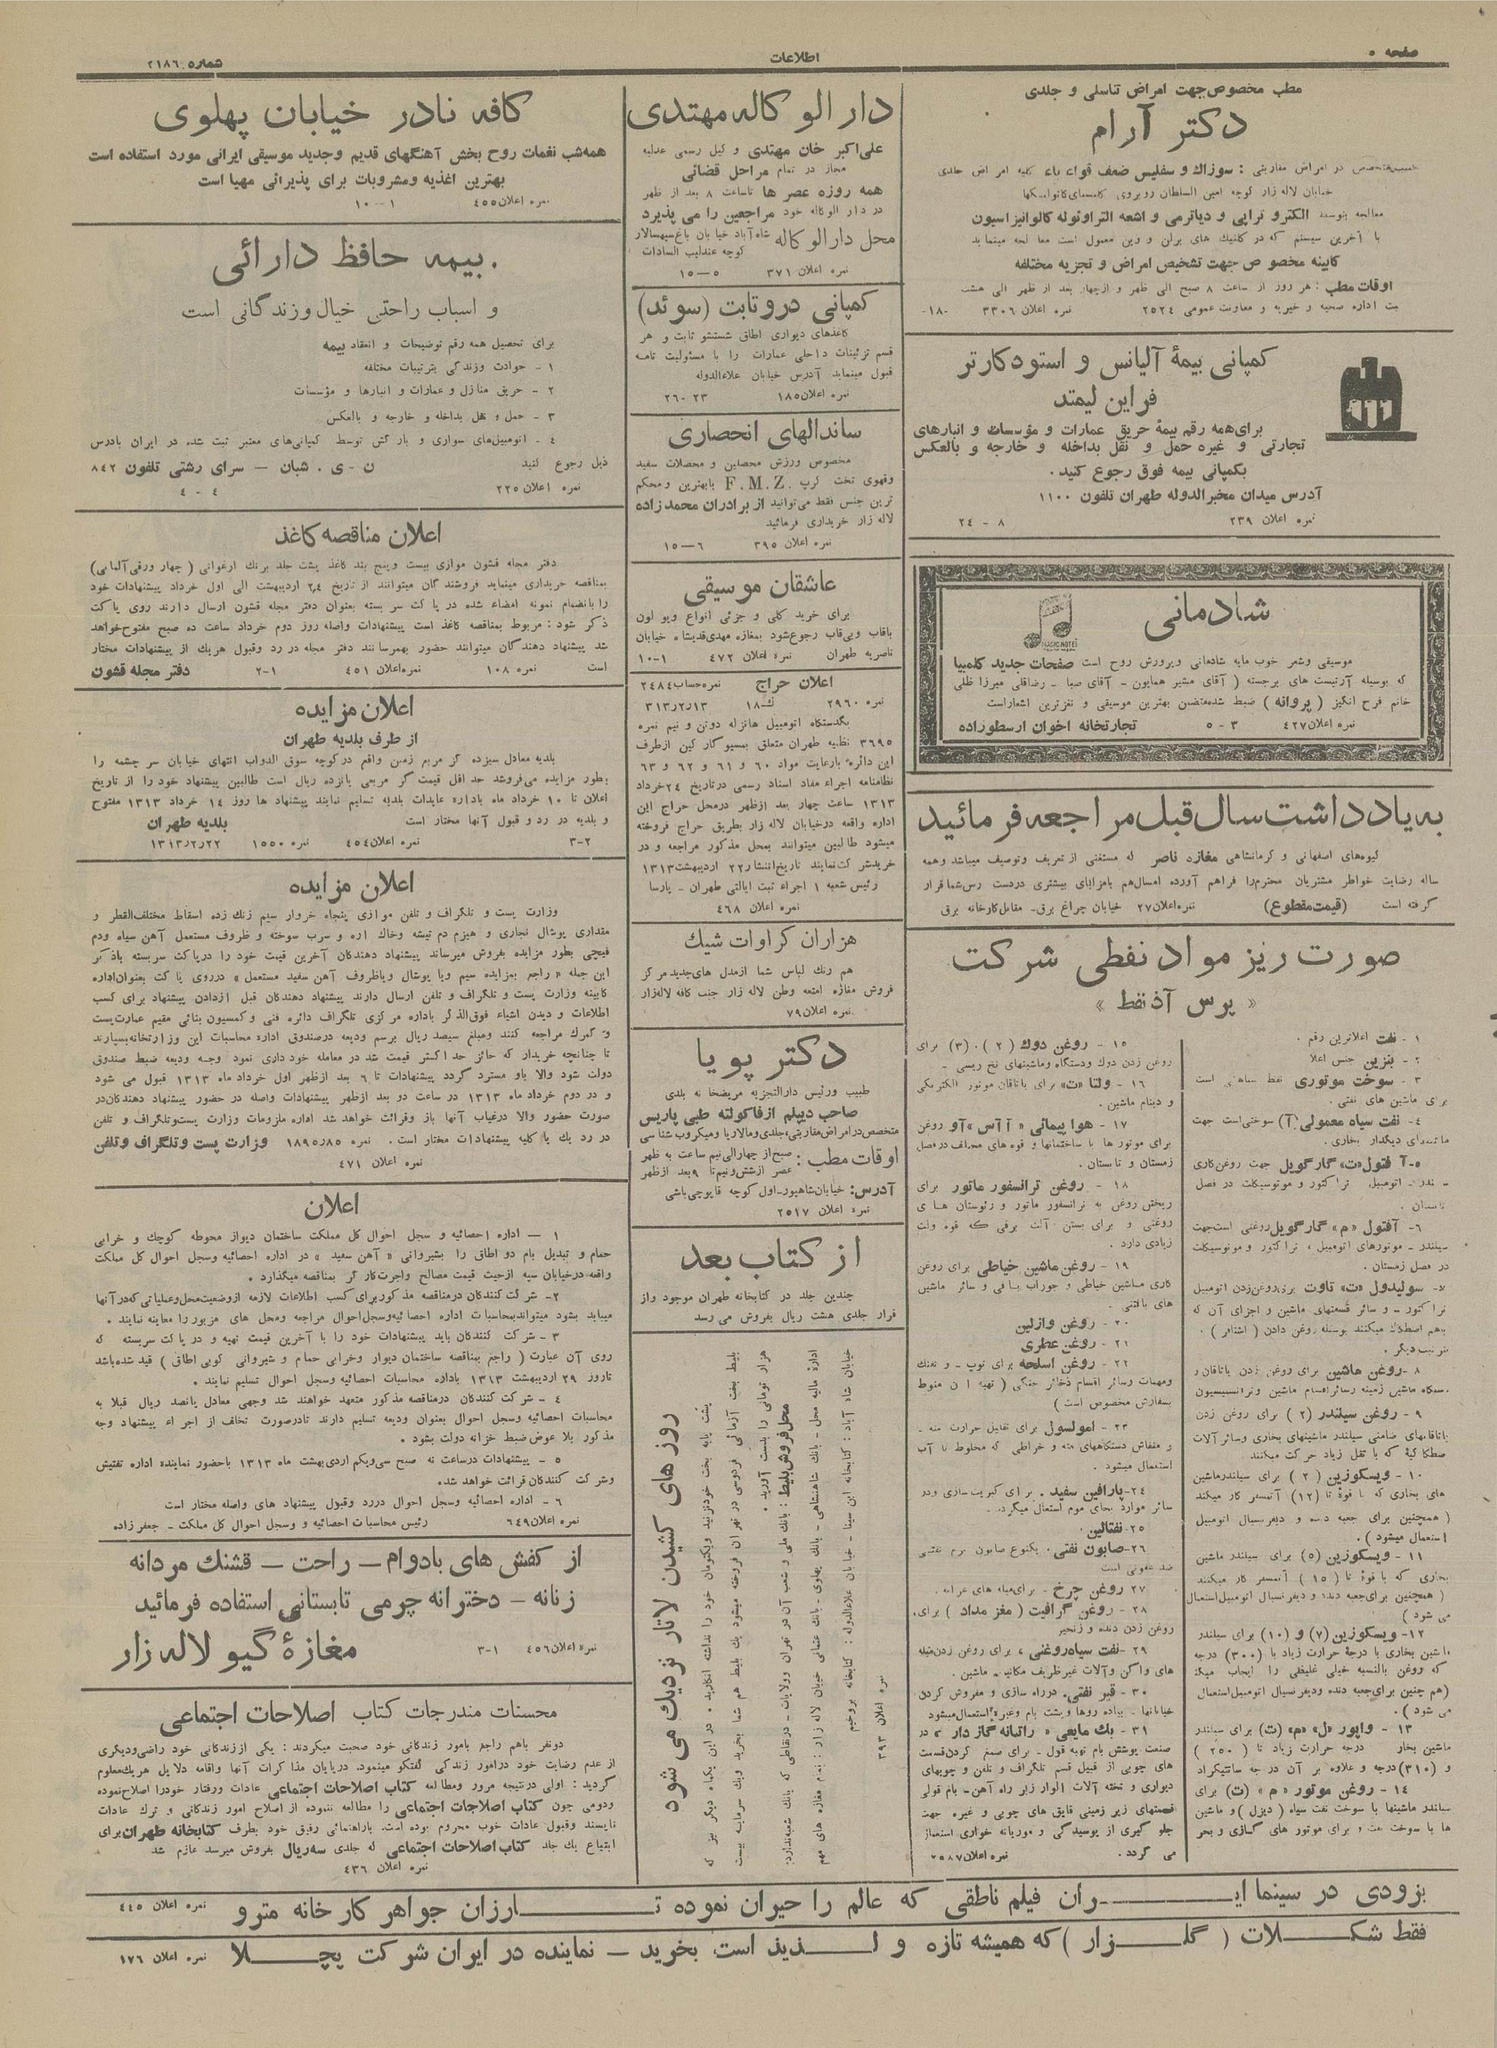 صفحه ۵
اطلاعات
شماره ۲۱۸۶
مطب مخصوص جهت امراض تناسلی و جلدی
دکتر آرام
متخصص در امراض مقاربتی : سوزاک و سفلیس ضعف قواء باء کلیه امراض جلدی
خیابان لاله زار کوچه امین السلطان روبروی
معالجه بتوسط الکترو تراپی و دیاترمی و اشعه التراوئوله کالوانیزاسیون
با آخرین سیستم که در کلنیک های برلن و وین معمول است معالجه مینماید
کابینه مخصوص جهت تشخیص امراض و تجزیه مختلفه
اوقات مطب : هر روز از ساعت ۸ صبح الی ظهر و از چهار بعد از ظهر الی هشت
ثبت اداره صحیه و خیریه و معاونت عمومی ۲۵۲۴ نمره اعلان ۳۳۰۶ ۱۸-
کمپانی بیمهٔ آلیانس و استودکارتر
فراین لیمتد
برای همه رقم بیمهٔ حریق عمارات و مؤسسات و انبارهای
تجارتی و غیره حمل و نقل بداخله و خارجه و بالعکس
بکمپانی بیمه فوق رجوع کنید.
آدرس میدان مخبرالدوله طهران تلفون ۱۱۰۰
نمره اعلان ۲۳۹ ۸ - ۲۴
شادمانی
MUSIC NOTE
موسیقی وشعر خوب مایه شادمانی وپرورش روح است صفحات جدید کلمبیا
که بوسیله آرتیست های برجسته ( آقای مشیر همایون - آقای صبا - رضاقلی میرزا ظلی
خانم فرح انگیز ( پروانه ) ضبط شده متضمن بهترین موسیقی و نغزترین اشعار است
نمره اعلان ۴۲۷ ۳ - ۵ تجارتخانه اخوان ارسطوزاده
به یادداشت سال قبل مراجعه فرمائید
گیوه‌های اصفهانی و کرمانشاهی مغازه ناصر که مستغنی از تعریف وتوصیف میباشد وهمه
ساله رضایت خواطر مشتریان محترم را فراهم آورده امسال هم بامزایای بیشتری در دسترس شما قرار
گرفته است (قیمت مقطوع) نمره اعلان ۲۷ خیابان چراغ برق - مقابل کارخانه برق
صورت ریز مواد نفطی شرکت
« پرس آذ نفط »
۱ - نفت اعلاترین رقم .
۲ - بنزین جنس اعلا
۳ - سوخت موتوری نفط سیاهی است
برای ماشین های نفتی .
۴ - نفت سیاه معمولی (آ) سوختی است جهت
ماشینهای دیگدار بخاری .
۵ - آفتول «ت» گارگویل جهت روغن کاری
سلندر - اتومبیل . تراکتور و موتوسیکلت در فصل
تابستان .
۶ - آفتول «م» گارگویل روغنی است جهت
سیلندر - موتورهای اتومبیل ، تراکتور و موتوسیکلت
در فصل زمستان .
۷ - سولیدول «ت» تاوت برای روغن زدن اتومبیل
تراکتور - و سائر قسمتهای ماشین و اجزای آن که
باهم اصطکاک میکنند بوسیله روغن دادن ( اشتافر )
۸ - روغن ماشین برای روغن زدن یاتاقان و
۹ - روغن سیلندر (۲) برای روغن زدن
یاتاقانهای ضامنی سیلندر ماشینهای بخاری وسائر آلات
۱۰ - ویسکوزین (۲) برای سیلندر ماشین
های بخاری که با قوهٔ تا (۱۲) آتمسفر کار میکند
( همچنین برای جعبه دنده و دیفرنسیال اتومبیل
استعمال میشود ) .
۱۱ - ویسکوزین (۵) برای سیلندر ماشین
بخاری که با قوهٔ تا (۱۵) آتمسفر کار میکند
( همچنین برای جعبه دنده و دیفرنسیال اتومبیل استعمال
می شود )
۱۲ - ویسکوزین (۷) و (۱۰) برای سیلندر
ماشین بخاری با درجهٔ حرارت زیاد تا (۳۰۰) درجه
که روغن بالنسبه خیلی غلیظی را ایجاب میکند
(هم چنین برای جعبه دنده ودیفرنسیال اتومبیل استعمال
می شود ) .
۱۳ - واپور «ل» «م» (ت) برای سیلندر
ماشین بخار درجه حرارت زیاد تا ( ۲۵۰ )
و (۳۱۰) درجه و علاوه بر آن درجه سانتیگراد
۱۴ - روغن موتور «م» (ت) برای
سیلندر ماشینها با سوخت نفت سیاه (دیزل) و ماشین
ها با سوخت نفت و برای موتور های گازی و بحر
۱۵ - روغن دوک (۲) . (۳) برای
روغن زدن دوک ودستگاه وماشینهای نخ ریسی .
۱۶ - ولتا «ت» برای یاتاقان موتور الکتریکی
و دینام ماشین .
۱۷ - هوا پیمائی « آآس » آو روغن
برای موتور ها با ساختمانها و قوه های مختلف در فصل
زمستان و تابستان .
۱۸ - روغن ترانسفورماتور برای
ریختن روغن به ترانسفور ماتور و رئوستان های
روغنی و برای بستن آلت برقی که قوه ولت
زیادی دارد .
۱۹ - روغن ماشین خیاطی برای روغن
کاری ماشین خیاطی و جوراب بافی و سائر ماشین
های بافتنی .
۲۰ - روغن وازلین
۲۱ - روغن عطری
۲۲ - روغن اسلحه برای توپ - و تفنگ
ومهمات وسائر اقسام ذخائر جنگی ( تهیه آن منوط
بسفارش مخصوص است )
۲۳ - امولسول برای تقلیل حرارت مته -
و منقاش دستگاههای مته و خراطی که مخلوط با آب
استعمال میشود .
۲۴ - پارافین سفید . برای کبریت سازی ودر
سائر موارد بجای موم استعمال میگردد.
۲۵ - نفتالین .
۲۶ - صابون نفتی . یکنوع صابون نرم نفتی
ضد عفونی است
۲۷ - روغن چرخ - برای میله های عرابه .
۲۸ - روغن گرافیت ( مغز مداد ) برای .
روغن زدن دنده و زنجیر
۲۹ - نفت سیاه روغنی ، برای روغن زدن میله
های واگن وآلات غیرظریف مکانیه ماشین .
۳۰ - قیر نفتی . درراه سازی و مفروش کردن
خیابانها - پیاده روها وپشت بام وغیره استعمال میشود
۳۱ - پک مایعی « راتبانه گاز دار » در
صنعت پوشش بام توبه قول - برای صمغ کردن قسمت
های چوبی از قبیل قسم تلگراف و تلفن و چوبهای
دیواری و تخته آلات الوار زیر راه آهن - بام قولی
قسمتهای زیر زمینی قایق های چوبی و غیره جهت
جلو گیری از پوسیدگی و موریانه خواری استعمال
می گردد . نمره اعلان ۲۵۸۷
دارالوکاله مهتدی
علی اکبر خان مهتدی وکیل رسمی عدلیه
مجاز در تمام مراحل قضائی
همه روزه عصر ها تا ساعت ۸ بعد از ظهر
در دار الوکاله خود مراجعین را می پذیرد
محل دارالوکاله شاه‌آباد خیابان باغ سپهسالار
کوچه عندلیب السادات
نمره اعلان ۳۷۱ ۵—۱۵
کمپانی دروتابت (سوئد)
کاغذهای دیواری اطاق شستشو ثابت و هر
قسم تزئینات داخلی عمارات را با مسئولیت تامه
قبول مینماید آدرس خیابان علاءالدوله
نمره اعلان ۱۸۵ ۲۳-۲۶
ساندالهای انحصاری
مخصوص ورزش محصلین و محصلات سفید
وقهوی تخت کرپ F.M.Z. بابهترین ومحکم
ترین جنس فقط می‌توانید از برادران محمدزاده
لاله زار خریداری فرمائید
نمره اعلان ۳۹۵ ۶—۱۵
عاشقان موسیقی
برای خرید کلی و جزئی انواع ویولون
باقاب وبی‌قاب رجوع شود بمغازه مهدی قدیشاه خیابان
ناصریه طهران نمره اعلان ۴۷۲ ۱-۱۰
اعلان حراج نمره حساب ۲۴۸۴
نمره ۲۹۶۰ ک-۱۸ ۳۱۳/۲/۱۳
یکدستگاه اتومبیل هانزله دوتن و نیم نمره
۳۶۹۵ نظمیه طهران متعلق بمسیو کارکین ازطرف
این دائره بارعایت مواد ۶۰ و ۶۱ و ۶۲ و ۶۳
نظامنامه اجراء مفاد اسناد رسمی در تاریخ ۲۴ خرداد
۱۳۱۳ ساعت چهار بعد ازظهر درمحل حراج این
اداره واقعه درخیابان لاله زار بطریق حراج فروخته
میشود طالبین میتوانند بمحل مذکور مراجعه و در
خرید شرکت نمایند تاریخ انتشار ۲۲ اردیبهشت ۱۳۱۳
رئیس شعبه ۱ اجراء ثبت ایالتی طهران - پارسا
نمره اعلان ۴۶۸
هزاران کراوات شیک
هم رنگ لباس شما ازمدل های جدید مرکز
فروش مغازه امتعه وطن لاله زار جنب کافه لاله‌زار
نمره اعلان ۷۹
دکتر پویا
طبیب ورئیس دارالتجزیه مریضخانه بلدی
صاحب دیپلم از فاکولته طبی پاریس
متخصص در امراض مقاربتی، جلدی ومالاریا ومیکروب شناسی
اوقات مطب : صبح از چهار الی نیم ساعت به ظهر
عصر ازشش ونیم تا ۹ بعد ازظهر
آدرس: خیابان شاهپور-اول کوچه قاپوچی باشی
نمره اعلان ۲۵۱۷
از کتاب بعد
چندین جلد در کتابخانه طهران موجود واز
قرار جلدی هشت ریال بفروش می رسد
روز های کشیدن لاتار نزدیک می شود
پشت پابه بخت خودنزنید وبگوئید خود را نداشته انگارید . در این یکماه دیگر نیز که
بلیط بخت آزمائی فردوسی در تهران فروخته میشود یک بلیط هم شما بخرید ویک سرمایه بیست
هزار تومانی را بدست آورید .
محل فروش بلیط : بانک ملی و شعب آن در تهران وولایات - درنقاطی که بانک شعبه ندارد:
اداره مالیه محل - بانک شاهنشاهی - بانک پهلوی - بانک عثمانی خیابان لاله زار : تمام مغازه های مهم
خیابان شاه آباد : کتابخانه ابن سینا - خیابان علاءالدوله : کتابخانه بروخیم
نمره اعلان ۳۹۳
کافه نادر خیابان پهلوی
همه‌شب نغمات روح بخش آهنگهای قدیم وجدید موسیقی ایرانی مورد استفاده است
بهترین اغذیه ومشروبات برای پذیرائی مهیا است
نمره اعلان ۴۵۵ ۱--۱۰
بیمه حافظ دارائی
و اسباب راحتی خیال وزندگانی است
برای تحصیل همه رقم توضیحات و انعقاد بیمه
۱ - حوادث وزندگی بترتیبات مختلفه
۲ - حریق منازل و عمارات و انبارها و مؤسسات
۳ - حمل و نقل بداخله و خارجه و بالعکس
۴ - اتومبیل‌های سواری و بارکش توسط کمپانی‌های معتبر ثبت شده در ایران بادرس
ذیل رجوع کنید ن - ی . شبان — سرای رشتی تلفون ۸۴۲
نمره اعلان ۲۲۵ ۴ - ۴
اعلان مناقصه کاغذ
دفتر مجله قشون موازی بیست وپنج بند کاغذ پشت جلد برنک ارغوانی ( چهار ورقی آلمانی )
بمناقصه خریداری مینماید فروشندگان میتوانند از تاریخ ۲۴ اردیبهشت الی اول خرداد پیشنهادات خود
را بانضمام نمونه امضاء شده در پاکت سر بسته بعنوان دفتر مجله قشون ارسال دارند روی پاکت
ذکر شود : مربوط بمناقصه کاغذ است پیشنهادات واصله روز دوم خرداد ساعت ده صبح مفتوح خواهد
شد پیشنهاد دهندگان میتوانند حضور بهمرسانند دفتر مجله در رد وقبول هریک از پیشنهادات مختار
است نمره ۱۰۸ نمره اعلان ۴۵۱ ۱-۲ دفتر مجله قشون
اعلان مزایده
از طرف بلدیه طهران
بلدیه معادل سیزده گز مربع زمین واقع درکوچه سوق الدواب انتهای خیابان سر چشمه را
بطور مزایده می‌فروشد حد اقل قیمت گز مربعی پانزده ریال است طالبین پیشنهاد خود را از تاریخ
اعلان تا ۱۰ خرداد ماه باداره عایدات بلدیه تسلیم نمایند پیشنهاد ها روز ۱۴ خرداد ۱۳۱۳ مفتوح
و بلدیه در رد و قبول آنها مختار است بلدیه طهران
۲-۳ نمره اعلان ۴۵۴ نمره ۱۵۵۰ ۱۳۱۳/۲/۲۲
اعلان مزایده
وزارت پست و تلگراف و تلفن موازی پنجاه خروار سیم زنک زده اسقاط مختلف‌القطر و
مقداری پوشال نجاری و هیزم دم تیشه وخاک اره و سرب سوخته و ظروف مستعمل آهن سیاه ودم
قیچی بطور مزایده بفروش میرساند پیشنهاد دهندگان آخرین قیمت خود را درپاکت سربسته باذکر
این جمله « راجع بمزایده سیم ویا پوشال ویاظروف آهن سفید مستعمل » درروی پاکت بعنوان اداره
کابینه وزارت پست و تلگراف و تلفن ارسال دارند پیشنهاد دهندگان قبل ازدادن پیشنهاد برای کسب
اطلاعات و دیدن اشیاء فوق‌الذکر باداره مرکزی تلگراف دائره فنی و کمسیون بنائی مقیم عمارت پست
و گمرک مراجعه کنند ومبلغ سیصد ریال برسم ودیعه درصندوق اداره محاسبات این وزارتخانه بسپارند
تا چنانچه خریدار که حائز حد اکثر قیمت شد در معامله خود داری نمود وجه ودیعه ضبط صندوق
دولت شود والا باو مسترد گردد پیشنهادات تا ۶ بعد ازظهر اول خرداد ماه ۱۳۱۳ قبول می شود
و در دوم خرداد ماه ۱۳۱۳ در ساعت دو بعد ازظهر پیشنهادات واصله در حضور پیشنهاد دهندگان در
صورت حضور والا درغیاب آنها باز وقرائت خواهد شد اداره ملزومات وزارت پست وتلگراف و تلفن
در رد یک یا کلیه پیشنهادات مختار است . نمره ۱۸۹۵/۸۵ وزارت پست وتلگراف وتلفن
نمره اعلان ۴۷۱
اعلان
۱ — اداره احصائیه و سجل احوال کل مملکت ساختمان دیوار محوطه کوچک و خرابی
حمام و تبدیل بام دو اطاق را بشیروانی « آهن سفید » در اداره احصائیه وسجل احوال کل مملکت
واقعه درخیابان سپه ازحیث قیمت مصالح واجرت کار گر بمناقصه میگذارد .
۲- شرکت کنندگان درمناقصه مذکور برای کسب اطلاعات لازمه ازوضعیت محل وعملیاتی که در آنها
میباید بشود میتوانند بمحاسبات اداره احصائیه وسجل احوال مراجعه ومحل های مزبور را معاینه نمایند .
۳ - شرکت کنندگان باید پیشنهادات خود را با آخرین قیمت تهیه و در پاکت سربسته که
روی آن عبارت ( راجع بمناقصه ساختمان دیوار وخرابی حمام و شیروانی کوبی اطاق ) قید شده باشد
تاروز ۲۹ اردیبهشت ۱۳۱۳ باداره محاسبات احصائیه وسجل احوال تسلیم نمایند .
۴ - شرکت کنندگان درمناقصه مذکور متعهد خواهند شد وجهی معادل پانصد ریال قبلا به
محاسبات احصائیه وسجل احوال بعنوان ودیعه تسلیم دارند تادرصورت تخلف از اجراء پیشنهاد وجه
مذکور بلا عوض ضبط خزانه دولت بشود .
۵ - پیشنهادات درساعت نه صبح سی ویکم اردی بهشت ماه ۱۳۱۳ باحضور نماینده اداره تفتیش
وشرکت کنندگان قرائت خواهد شد.
۶ - اداره احصائیه وسجل احوال دررد وقبول پیشنهاد های واصله مختار است
نمره اعلان ۶۴۹ رئیس محاسبات احصائیه و وسجل احوال کل مملکت - جعفر زاده
از کفش های بادوام — راحت — قشنک مردانه
زنانه - دخترانه چرمی تابستانی استفاده فرمائید
نمره اعلان ۴۵۶ ۱-۳ مغازهٔ گیو لاله زار
محسنات مندرجات کتاب اصلاحات اجتماعی
دونفر باهم راجع بامور زندگانی خود صحبت میکردند : یکی اززندگانی خود راضی ودیگری
از عدم رضایت خود درامور زندگی گفتگو مینمود. درپایان مذاکرات آنها واقامه دلایل هریک معلوم
گردید : اولی درنتیجه مرور ومطالعه کتاب اصلاحات اجتماعی عادات ورفتار خودرا اصلاح نموده
ودومی چون کتاب اصلاحات اجتماعی را مطالعه ننموده از اصلاح امور زندگانی و ترک عادات
ناپسند وقبول عادات خوب محروم بوده است. باراهنمائی رفیق خود بطرف کتابخانه طهران برای
ابتیاع یک جلد کتاب اصلاحات اجتماعی که جلدی سه‌ریال بفروش میرسد عازم شد
نمره اعلان ۴۳۶
بزودی در سینما ایـــران فیلم ناطقی که عالم را حیران نموده تـــارزان جواهر کارخانه مترو نمره اعلان ۴۴۵
فقط شکـــلات ( گلـــزار ) که همیشه تازه و لـــذیذ است بخرید — نماینده در ایران شرکت پچـــلا نمره اعلان ۱۷۶